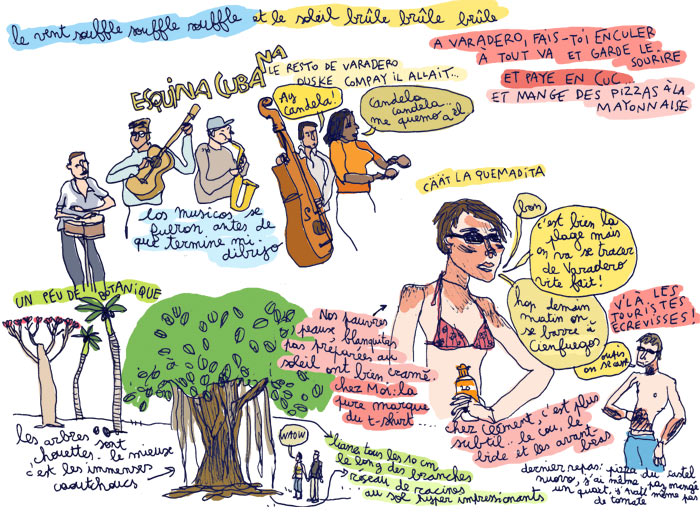 le vent souffle souffle souffle et le soleil brûle brûle brûle
A VARADERO, FAIS-TOI ENCULER
À TOUT VA ET GARDE LE
SOURIRE
ET PAYE EN CUC...
ET MANGE DES PIZZAS À LA
MAYONNAISE
ESQUINA CUBANA
LE RESTO DE VARADERO
OUSKE COMPAY IL ALLAIT...
Ay
Candela!
Candela
candela...
me quemo aé
los musicos se
fueron antes de
que termine mi
dibujo
CÄÄT LA QUEMADITA
bon
c'est bien la
plage mais
on va se tracer
de Varadero
vite fait!
hop demain
matin on
se barre à
Cienfuegos
V'LÀ LES
TOURISTES
ÉCREVISSES!
oufis
on se cass
UN PEU DE BOTANIQUE
Nos pauvres
peaux blanquitas
pas préparées au
soleil ont bien cramé.
chez Moi: la
pure marque
du t-shirt....
chez Clément, c'est plus
subtil.. le cou, le
bide et les avant-
bras
les arbres sont
chouettes. le mieux
c'est les immenses
caoutchoucs
WAOW
liane tous les 10 cm
le long des branches
réseau de racines
au sol hyper impressionants
dernier repas: pizza du castel
nuovo, j'ai même pas mangé
un quart, y'avait même pas
de tomate